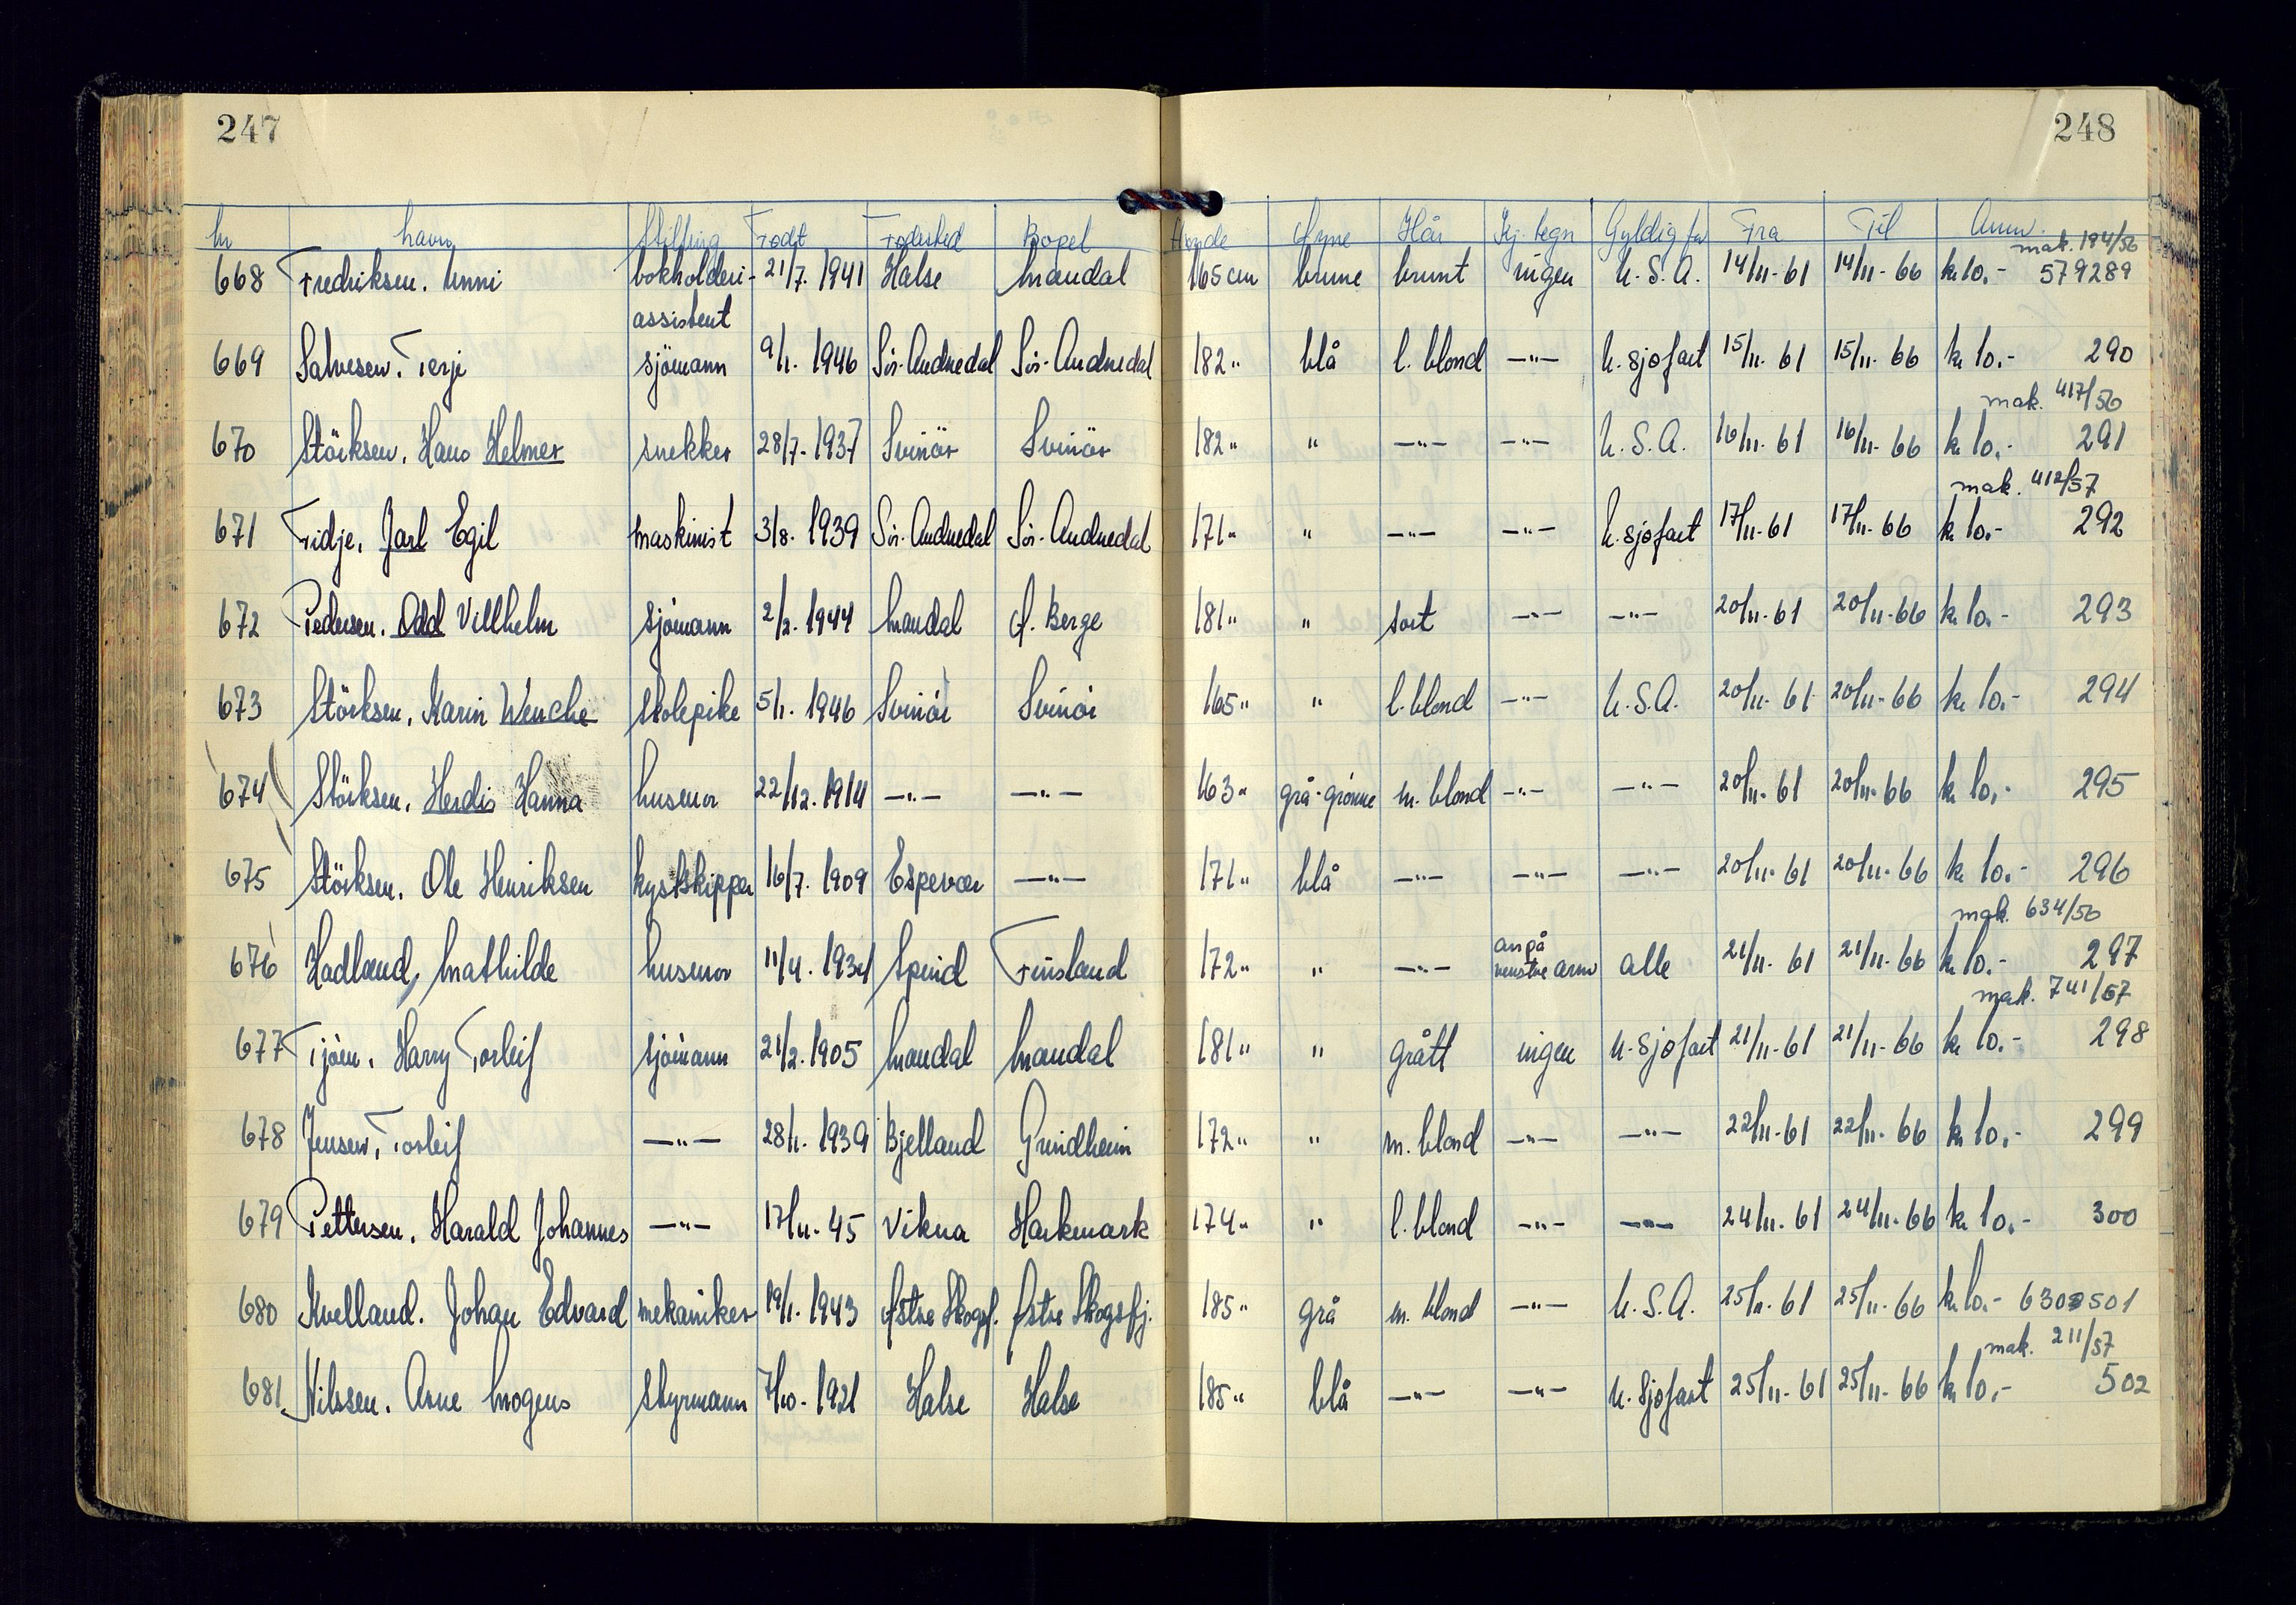 247
248
Nr Navn Stilling Født Fødested Bopel Høyde Øyne Hår Kj. tegn Gyldig for Fra Til Anm.
mak. 194/56
668 Fredriksen. Unni bokholderi- 21/7. 1941 Halse Mandal 165 cm brune brunt ingen U.S.A. 14/11-61 14/11-66 kr 10.- 579289
assistent
669 Salvesen. Terje sjömann 9/1. 1946 Sör-Audnedal Sör-Audnedal 182 " blå l. blond —"— u. sjøfart 15/11-61 15/11-66 kr 10.- 290
mak. 417/56
670 Störksen, Hans Helmer snekker 28/7-1937 Svinör Svinör 182 " " —"— —"— U.S.A. 16/11-61 16/11-66 kr 10.- 291
mak. 412/57
671 Fidje, Jarl Egil maskinist 3/8. 1939 Sör-Audnedal Sör-Audnedal 171 " " —"— —"— u. sjøfart 17/11-61 17/11-66 kr 10.- 292
672 Pedersen. Odd Villhelm sjömann 2/2. 1944 Mandal Ø. Berge 181 " " sort —"— —"— 20/11-61 20/11-66 kr 10.- 293
673 Störksen, Karin Wenche skolepike 5/1. 1946 Svinör Svinör 165 " " l. blond —"— U.S.A. 20/11-61 20/11-66 kr 10.- 294
674 Störksen, Herdis Hanna husmor 22/12. 1914 —"— —"— 163 " grå-grönne m. blond —"— —"— 20/11-61 20/11-66 kr 10.- 295
675 Störksen. Ole Henriksen kystskipper 16/7. 1909 Espevær —"— 171 " blå —"— —"— —"— 20/11-61 20/11-66 kr 10.- 296
mak. 634/56
arr på
676 Hadland, Mathilde husmor 11/4. 1934 Spind Finsland 172 " " —"— venstre arm alle 21/11-61 21/11-66 kr 10.- 297
mak. 741/57
677 Tjöm, Harry Torleif sjömann 21/2. 1905 Mandal Mandal 181 " " grått ingen u. sjøfart 21/11-61 21/11-66 kr 10.- 298
678 Jensen, Torleif —"— 28/1. 1939 Bjelland Grindheim 172 " " m. blond —"— —"— 22/11-61 22/11-66 kr 10.- 299
679 Pettersen. Harald Johannes —"— 17/11-45 Vikna Harkmark 174 " " l. blond —"— —"— 24/11-61 24/11-66 kr 10.- 300
680 Kvelland. Johan Edvard mekaniker 19/1. 1943 Østre Skogsf. Østre Skogsfj. 185 " grå m. blond —"— U.S.A. 25/11-61 25/11-66 kr 10.- 630501
mak. 211/57
681 Nilssen. Arne Mogens styrmann 7/10-1921 Halse Halse 185 " blå —"— —"— u. Sjøfart 25/11-61 25/11-66 kr 10.- 502